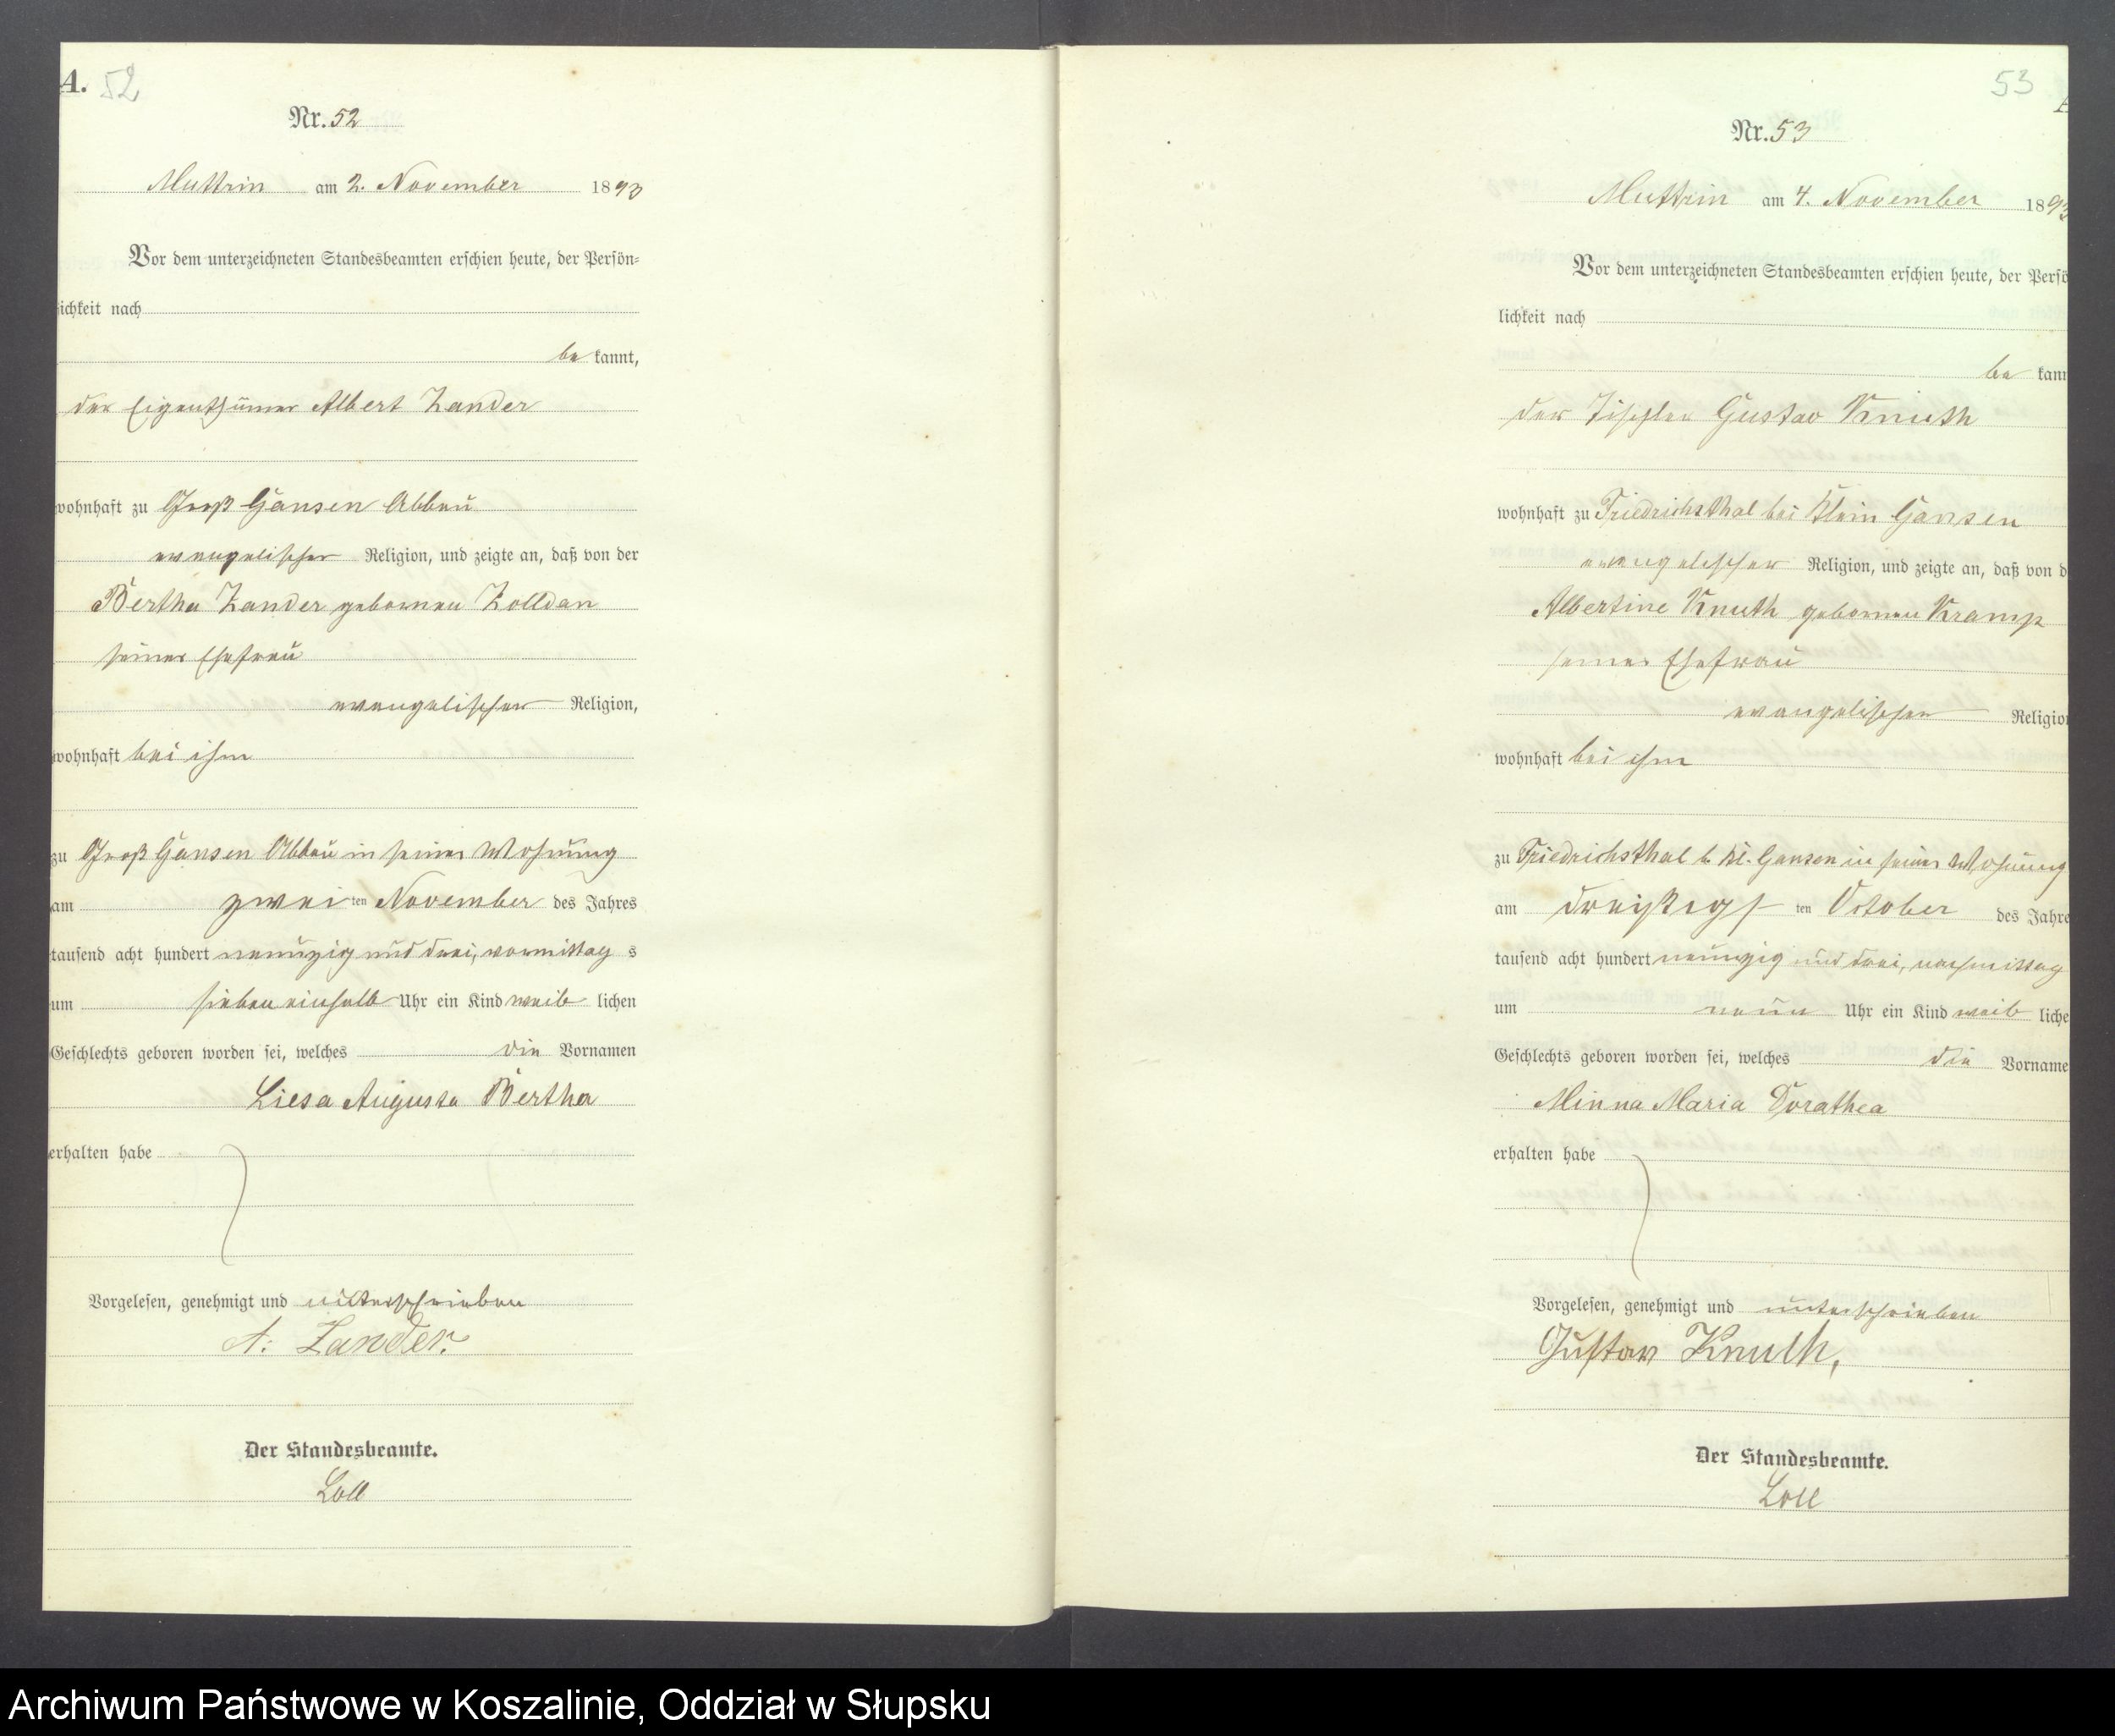 A. 52
Nr. 52
Muttrin am 2. November 1893
Vor dem unterzeichneten Standesbeamten erschien heute, der Persön-
lichkeit nach
be kannt,
der Eigenthümer Albert Zander
wohnhaft zu Groß Gansen Abbau
evangelischer Religion, und zeigte an, daß von der
Bertha Zander gebornen Zolldan
seiner Ehefrau
evangelischer Religion,
wohnhaft bei ihm
zu Groß Gansen Abbau in seiner Wohnung
am zwei ten November des Jahres
tausend acht hundert neunzig und drei, vormittag s
um sieben einhalb Uhr ein Kind weib lichen
Geschlechts geboren worden sei, welches die Vornamen
Liesa Auguste Bertha
erhalten habe
Vorgelesen, genehmigt und unterschrieben
A. Zander.
Der Standesbeamte.
Loll
53
A
Nr. 53
Muttrin am 4. November 1893
Vor dem unterzeichneten Standesbeamten erschien heute, der Persö
lichkeit nach
be kann
der Tischler Gustav Knuth
wohnhaft zu Friedrichsthal bei Klein Gansen
evangelischer Religion, und zeigte an, daß von d
Albertine Knuth gebornen Kramp
seiner Ehefrau
evangelischer Religion
wohnhaft bei ihm
zu Friedrichsthal b. Kl. Gansen in seiner Wohnung
am dreißigst ten October des Jahre
tausend acht hundert neunzig und drei, nachmittag
um neun Uhr ein Kind weib liche
Geschlechts geboren worden sei, welches die Vorname
Minna Maria Dorathea
erhalten habe
Vorgelesen, genehmigt und unterschrieben
Gustav Knuth,
Der Standesbeamte.
Loll
Archiwum Państwowe w Koszalinie, Oddział w Słupsku